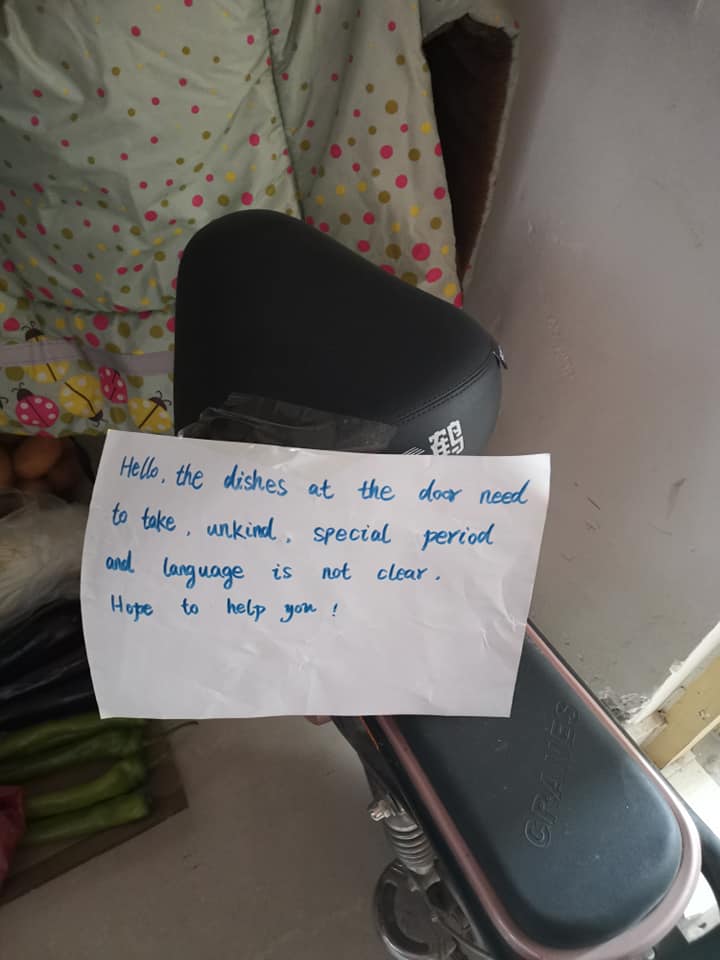 鹤
Hello, the dishes at the door need
to take, unkind, special period
and language is not clear.
Hope to help you!